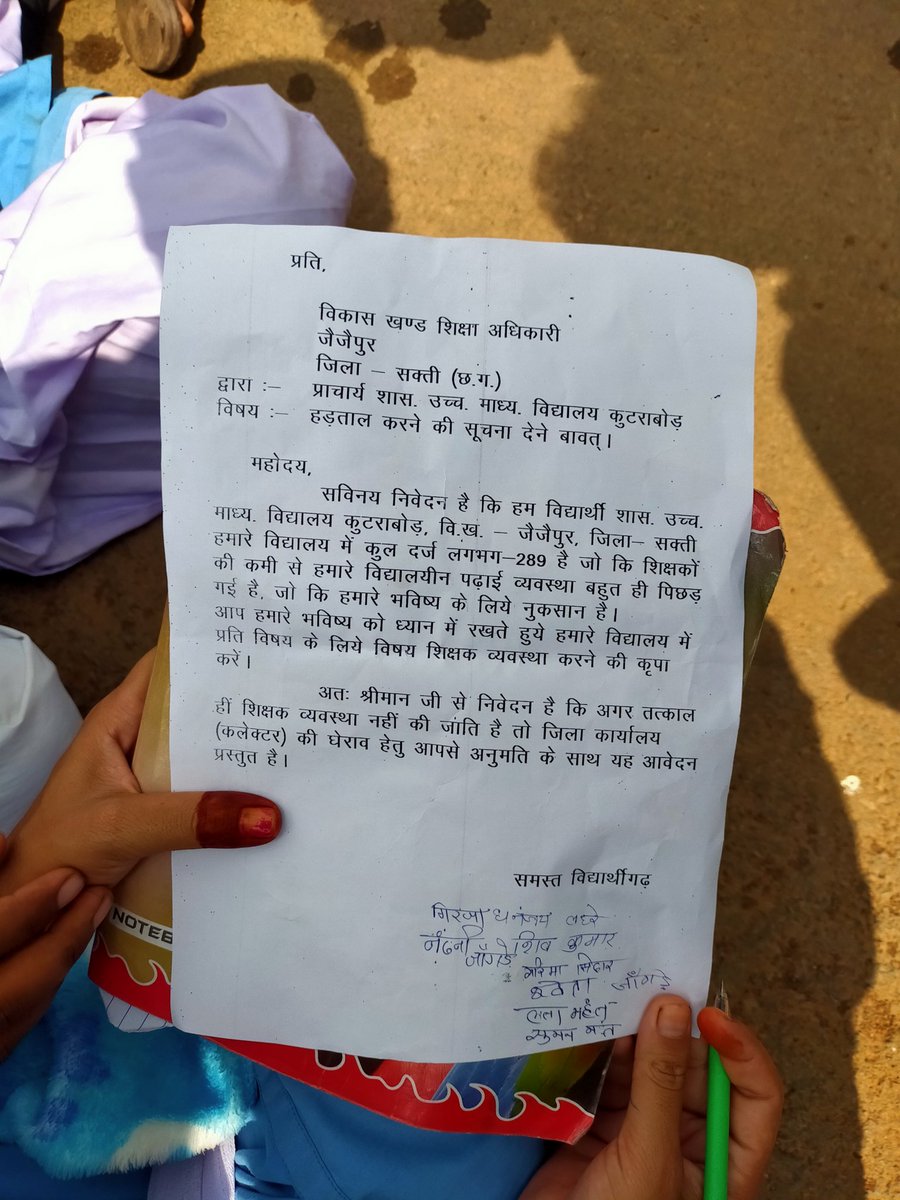 प्रति,
विकास खण्ड शिक्षा अधिकारी
जैजैपुर
जिला – सक्ती (छ.ग.)
द्वारा :– प्राचार्य शास. उच्च. माध्य. विद्यालय कुटराबोड़
विषय :– हड़ताल करने की सूचना देने बावत्।
महोदय,
सविनय निवेदन है कि हम विद्यार्थी शास. उच्च.
माध्य. विद्यालय कुटराबोड़, वि.ख. – जैजैपुर, जिला– सक्ती
हमारे विद्यालय में कुल दर्ज लगभग–289 है जो कि शिक्षकों
की कमी से हमारे विद्यालयीन पढाई व्यवस्था बहुत ही पिछड़
गई है, जो कि हमारे भविष्य के लिये नुकसान है।
आप हमारे भविष्य को ध्यान में रखते हुये हमारे विद्यालय में
प्रति विषय के लिये विषय शिक्षक व्यवस्था करने की कृपा
करें।
अतः श्रीमान जी से निवेदन है कि अगर तत्काल
हीं शिक्षक व्यवस्था नहीं की जाति है तो जिला कार्यालय
(कलेक्टर) की घेराव हेतु आपसे अनुमति के साथ यह आवेदन
प्रस्तुत है।
समस्त विद्यार्थीगढ़
गिरजा धनंजय लहरे
शिव कुमार
जाँगड़े
गरिमा सिदार
जाँगड़े
लता महंत
सुमन
NOTEB